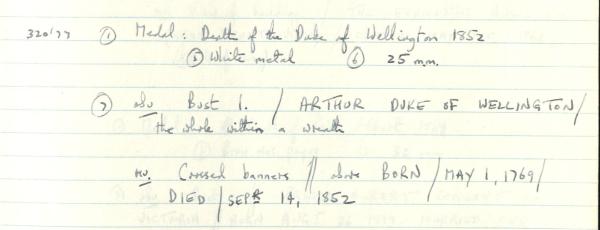 320'77 ① Medal: Death of the Duke of Wellington 1852
⑤ White metal ⑥ 25 m.m.
⑦ obv Bust l. / ARTHUR DUKE OF WELLINGTON /
the whole within a wreath
rev. Crossed banners // above BORN / MAY 1, 1769 /
DIED / SEPR 14, 1852